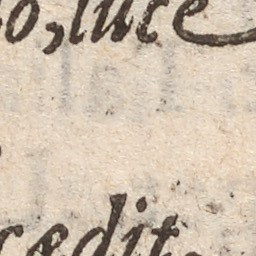 o, luce
cædit